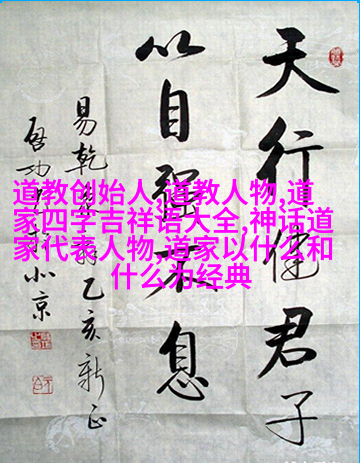 道教创始人,道教人物,道
家四字吉祥语大全,神话道
家代表人物,道家以什么和
什么为经典
天行健君子
以自强不息
易乾 乙亥新正
启功 北京